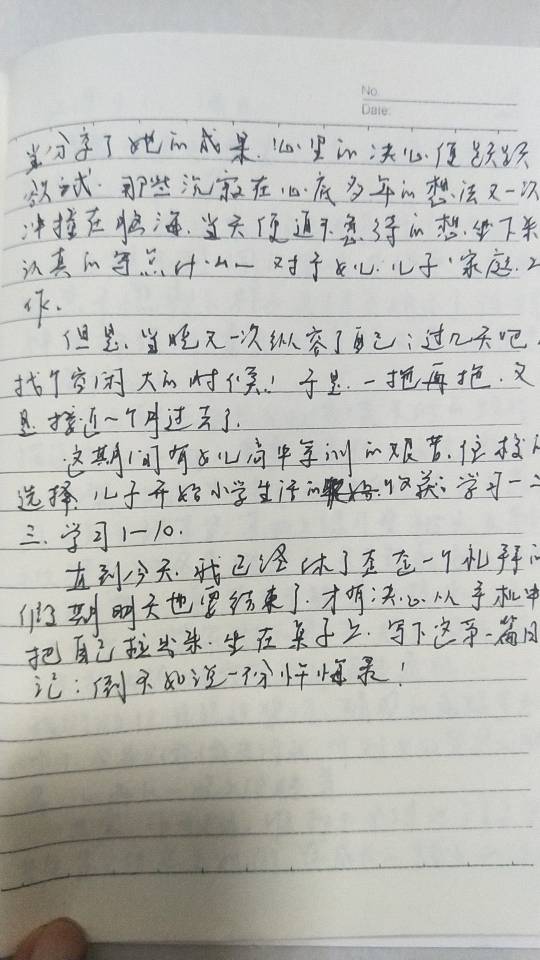 No.
Date:
当分享了她的成果,心里的决心便跃跃
欲试。那些沉寂在心底多年的想法又一次
冲撞在脑海,当天便迫不急待的想坐下来
认真的写点什么 对于女儿、儿子、家庭、工
作。
但是,当晚又一次纵容了自己:过几天吧,
找个空闲大的时候!于是,一拖再拖,又
是接近一个月过去了。
这期间有女儿高中军训的艰苦,住校的
选择,儿子开始小学生活的收获:学习一二
三,学习1—10。
直到今天,我已经休了整整一个礼拜的
假期明天也要结束了,才有决心从手机中
把自己拉出来,坐在桌子上,写下这第一篇日
记:倒不如说一份忏悔录!